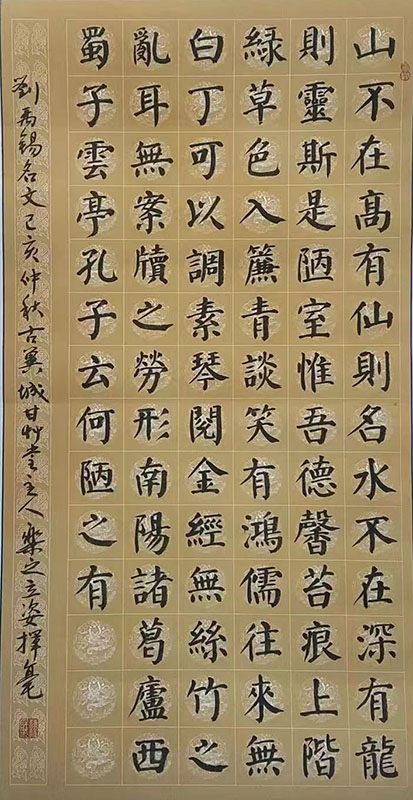 山不在髙有仙則名水不在深有龍
則靈斯是陋室惟吾德馨苔痕上階
綠草色入簾青談笑有鴻儒往來無
白丁可以調素琴閱金經無絲竹之
亂耳無案牘之勞形南陽諸葛廬西
蜀子雲亭孔子云何陋之有
劉禹錫名文己亥仲秋古冀城甘艸堂主人樂之立姿揮毫